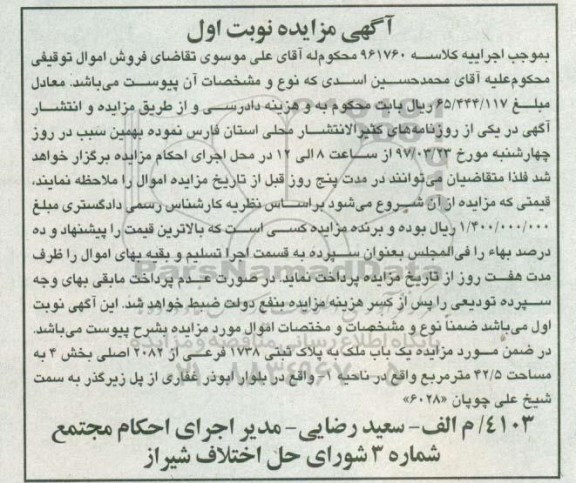 آگهی مزایده نوبت اول
بموجب اجراییه کلاسه ۹۶۱۷۶۰ محکوم‌له آقای علی موسوی تقاضای فروش اموال توقیفی
محکوم‌علیه آقای محمدحسین اسدی که نوع و مشخصات آن پیوست می‌باشد. معادل
مبلغ ۶۵/۴۴۴/۱۱۷ ریال بابت محکوم به و هزینه دادرسی و از طریق مزایده و انتشار
آگهی در یکی از روزنامه‌های کثیرالانتشار محلی استان فارس نموده بهمین سبب در روز
چهارشنبه مورخ ۹۷/۰۳/۲۳ از ساعت ۸ الی ۱۲ در محل اجرای احکام مزایده برگزار خواهد
شد فلذا متقاضیان می‌توانند در مدت پنج روز قبل از تاریخ مزایده اموال را ملاحظه نمایند،
قیمتی که مزایده از آن شروع می‌شود براساس نظریه کارشناس رسمی دادگستری مبلغ
۱/۴۰۰/۰۰۰/۰۰۰ ریال بوده و برنده مزایده کسی است که بالاترین قیمت را پیشنهاد و ده
درصد بهاء را فی‌المجلس بعنوان سپرده به قسمت اجرا تسلیم و بقیه بهای اموال را ظرف
مدت هفت روز از تاریخ مزایده پرداخت نماید. در صورت عدم پرداخت مابقی بهای وجه
سپرده تودیعی را پس از کسر هزینه مزایده بنفع دولت ضبط خواهد شد. این آگهی نوبت
اول می‌باشد ضمنا نوع و مشخصات و مختصات اموال مورد مزایده بشرح پیوست می‌باشد.
در ضمن مورد مزایده یک باب ملک به پلاک ثبتی ۱۷۳۸ فرعی از ۲۰۸۲ اصلی بخش ۴ به
مساحت ۴۲/۵ مترمربع واقع در ناحیه ۱- واقع در بلوار ابوذر غفاری از پل زیرگذر به سمت
شیخ علی چوپان «۶۰۲۸»
۴۱۰۳/ م الف- سعید رضایی- مدیر اجرای احکام مجتمع
شماره ۳ شورای حل اختلاف شیراز
ParsNamadData